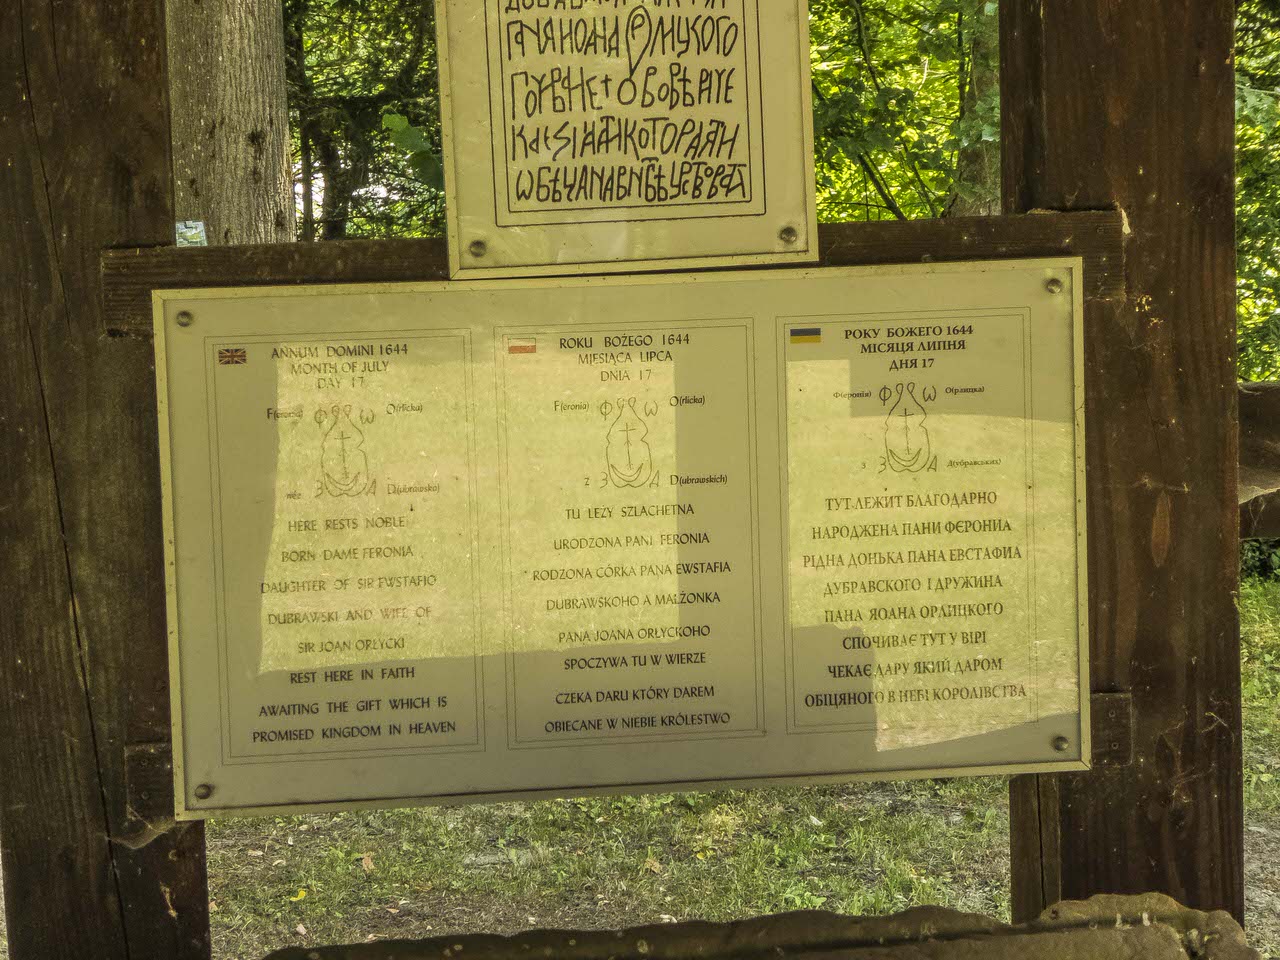 ANNUM DOMINI 1644
MONTH OF JULY
DAY 17
F(eronia) Ф Ѡ O(rlicka)
née З Д D(ubrawska)
HERE RESTS NOBLE
BORN DAME FERONIA
DAUGHTER OF SIR EWSTAFIO
DUBRAWSKI AND WIFE OF
SIR JOAN ORŁYCKI
REST HERE IN FAITH
AWAITING THE GIFT WHICH IS
PROMISED KINGDOM IN HEAVEN
ROKU BOŻEGO 1644
MIESIĄCA LIPCA
DNIA 17
F(eronia) Ф Ѡ O(rlicka)
z З Д D(ubrawskich)
TU LEŻY SZLACHETNA
URODZONA PANI FERONIA
RODZONA CÓRKA PANA EWSTAFIA
DUBRAWSKOHO A MAŁŻONKA
PANA JOANA ORŁYCKOHO
SPOCZYWA TU W WIERZE
CZEKA DARU KTÓRY DAREM
OBIECANE W NIEBIE KRÓLESTWO
РОКУ БОЖЕГО 1644
МІСЯЦЯ ЛИПНЯ
ДНЯ 17
Ф(еронія) Ф Ѡ О(рлицка)
з З Д Д(убравських)
ТУТ ЛЕЖИТ БЛАГОДАРНО
НАРОДЖЕНА ПАНИ ФЄРОНИА
РІДНА ДОНЬКА ПАНА ЕВСТАФИА
ДУБРАВСКОГО І ДРУЖИНА
ПАНА ЯОАНА ОРЛИЦКОГО
СПОЧИВАЄ ТУТ У ВІРІ
ЧЕКАЄ ДАРУ ЯКИЙ ДАРОМ
ОБІЦЯНОГО В НЕБІ КОРОЛІВСТВА